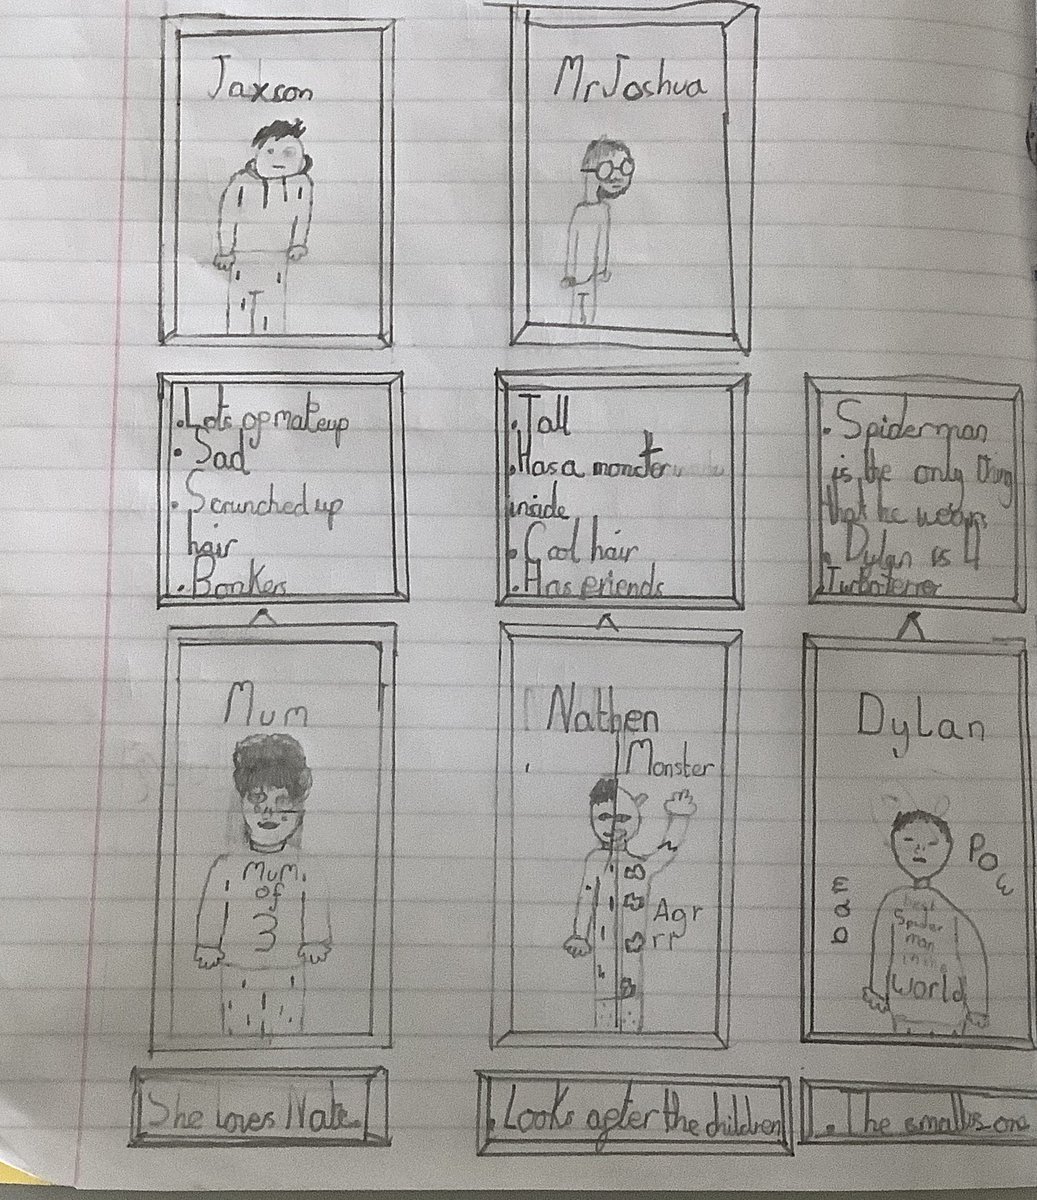 Jaxson
Mr Joshua
. Lots of makeup
. Sad
. Scrunched up
hair
. Bonkers
. Tall
. Has a monster
inside
. Cool hair
. Has friends
. Spiderman
is the only thing
that he wears
. Dylan is 4
Mum
Mum
of
3
Nathen
Monster
Agr
rr
Dylan
Pow
Spider
man
in the
World
She loves Nate.
. Looks after the children
. The smallis one